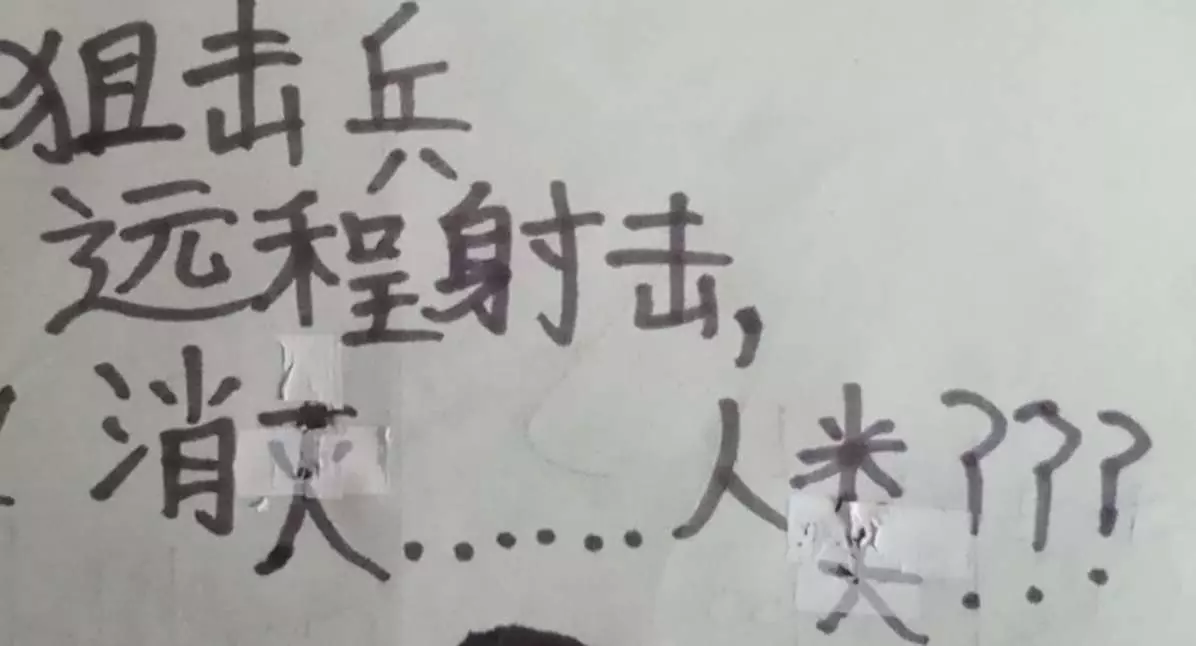 狙击兵
远程射击,
消灭......人类???